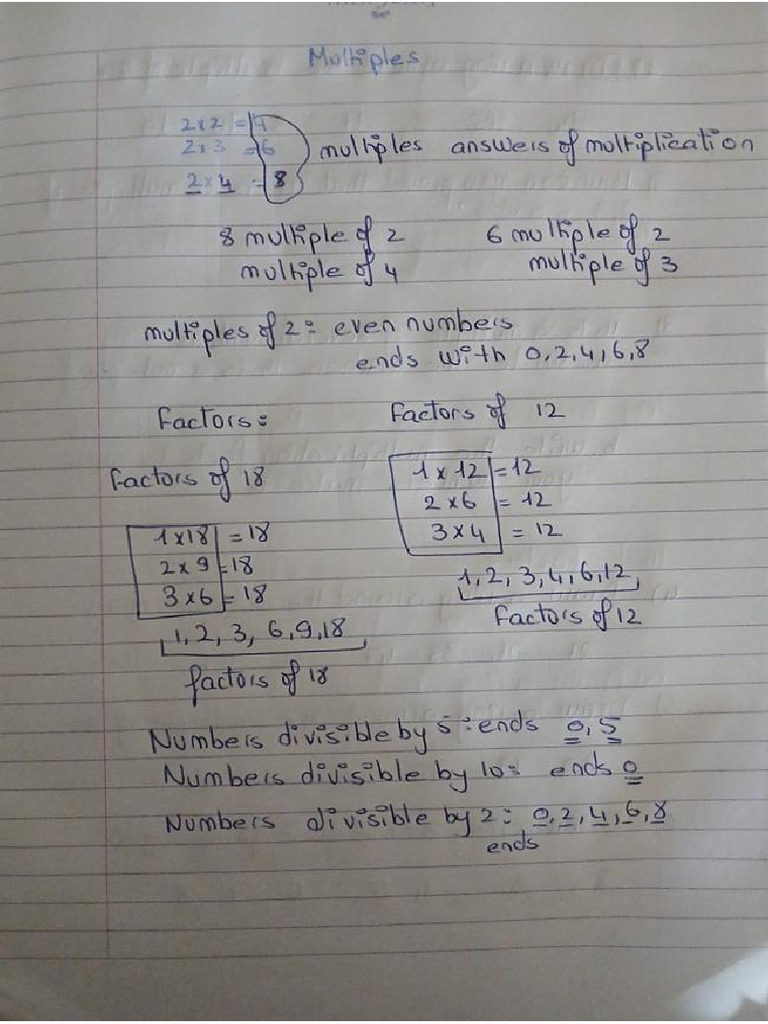 Multiples
2x2 = 4
2x3 = 6 multiples answers of multiplication
2x4 = 8
8 multiple of 2
multiple of 4
6 multiple of 2
multiple of 3
multiples of 2: even numbers
ends with 0,2,4,6,8
Factors:
Factors of 18
1x18 = 18
2x9 = 18
3x6 = 18
1, 2, 3, 6, 9, 18
factors of 18
Factors of 12
1 x 12 = 12
2 x 6 = 12
3 x 4 = 12
1, 2, 3, 4, 6, 12
Factors of 12
Numbers divisible by 5: ends 0, 5
Numbers divisible by 10: ends 0
Numbers divisible by 2: 0, 2, 4, 6, 8
ends